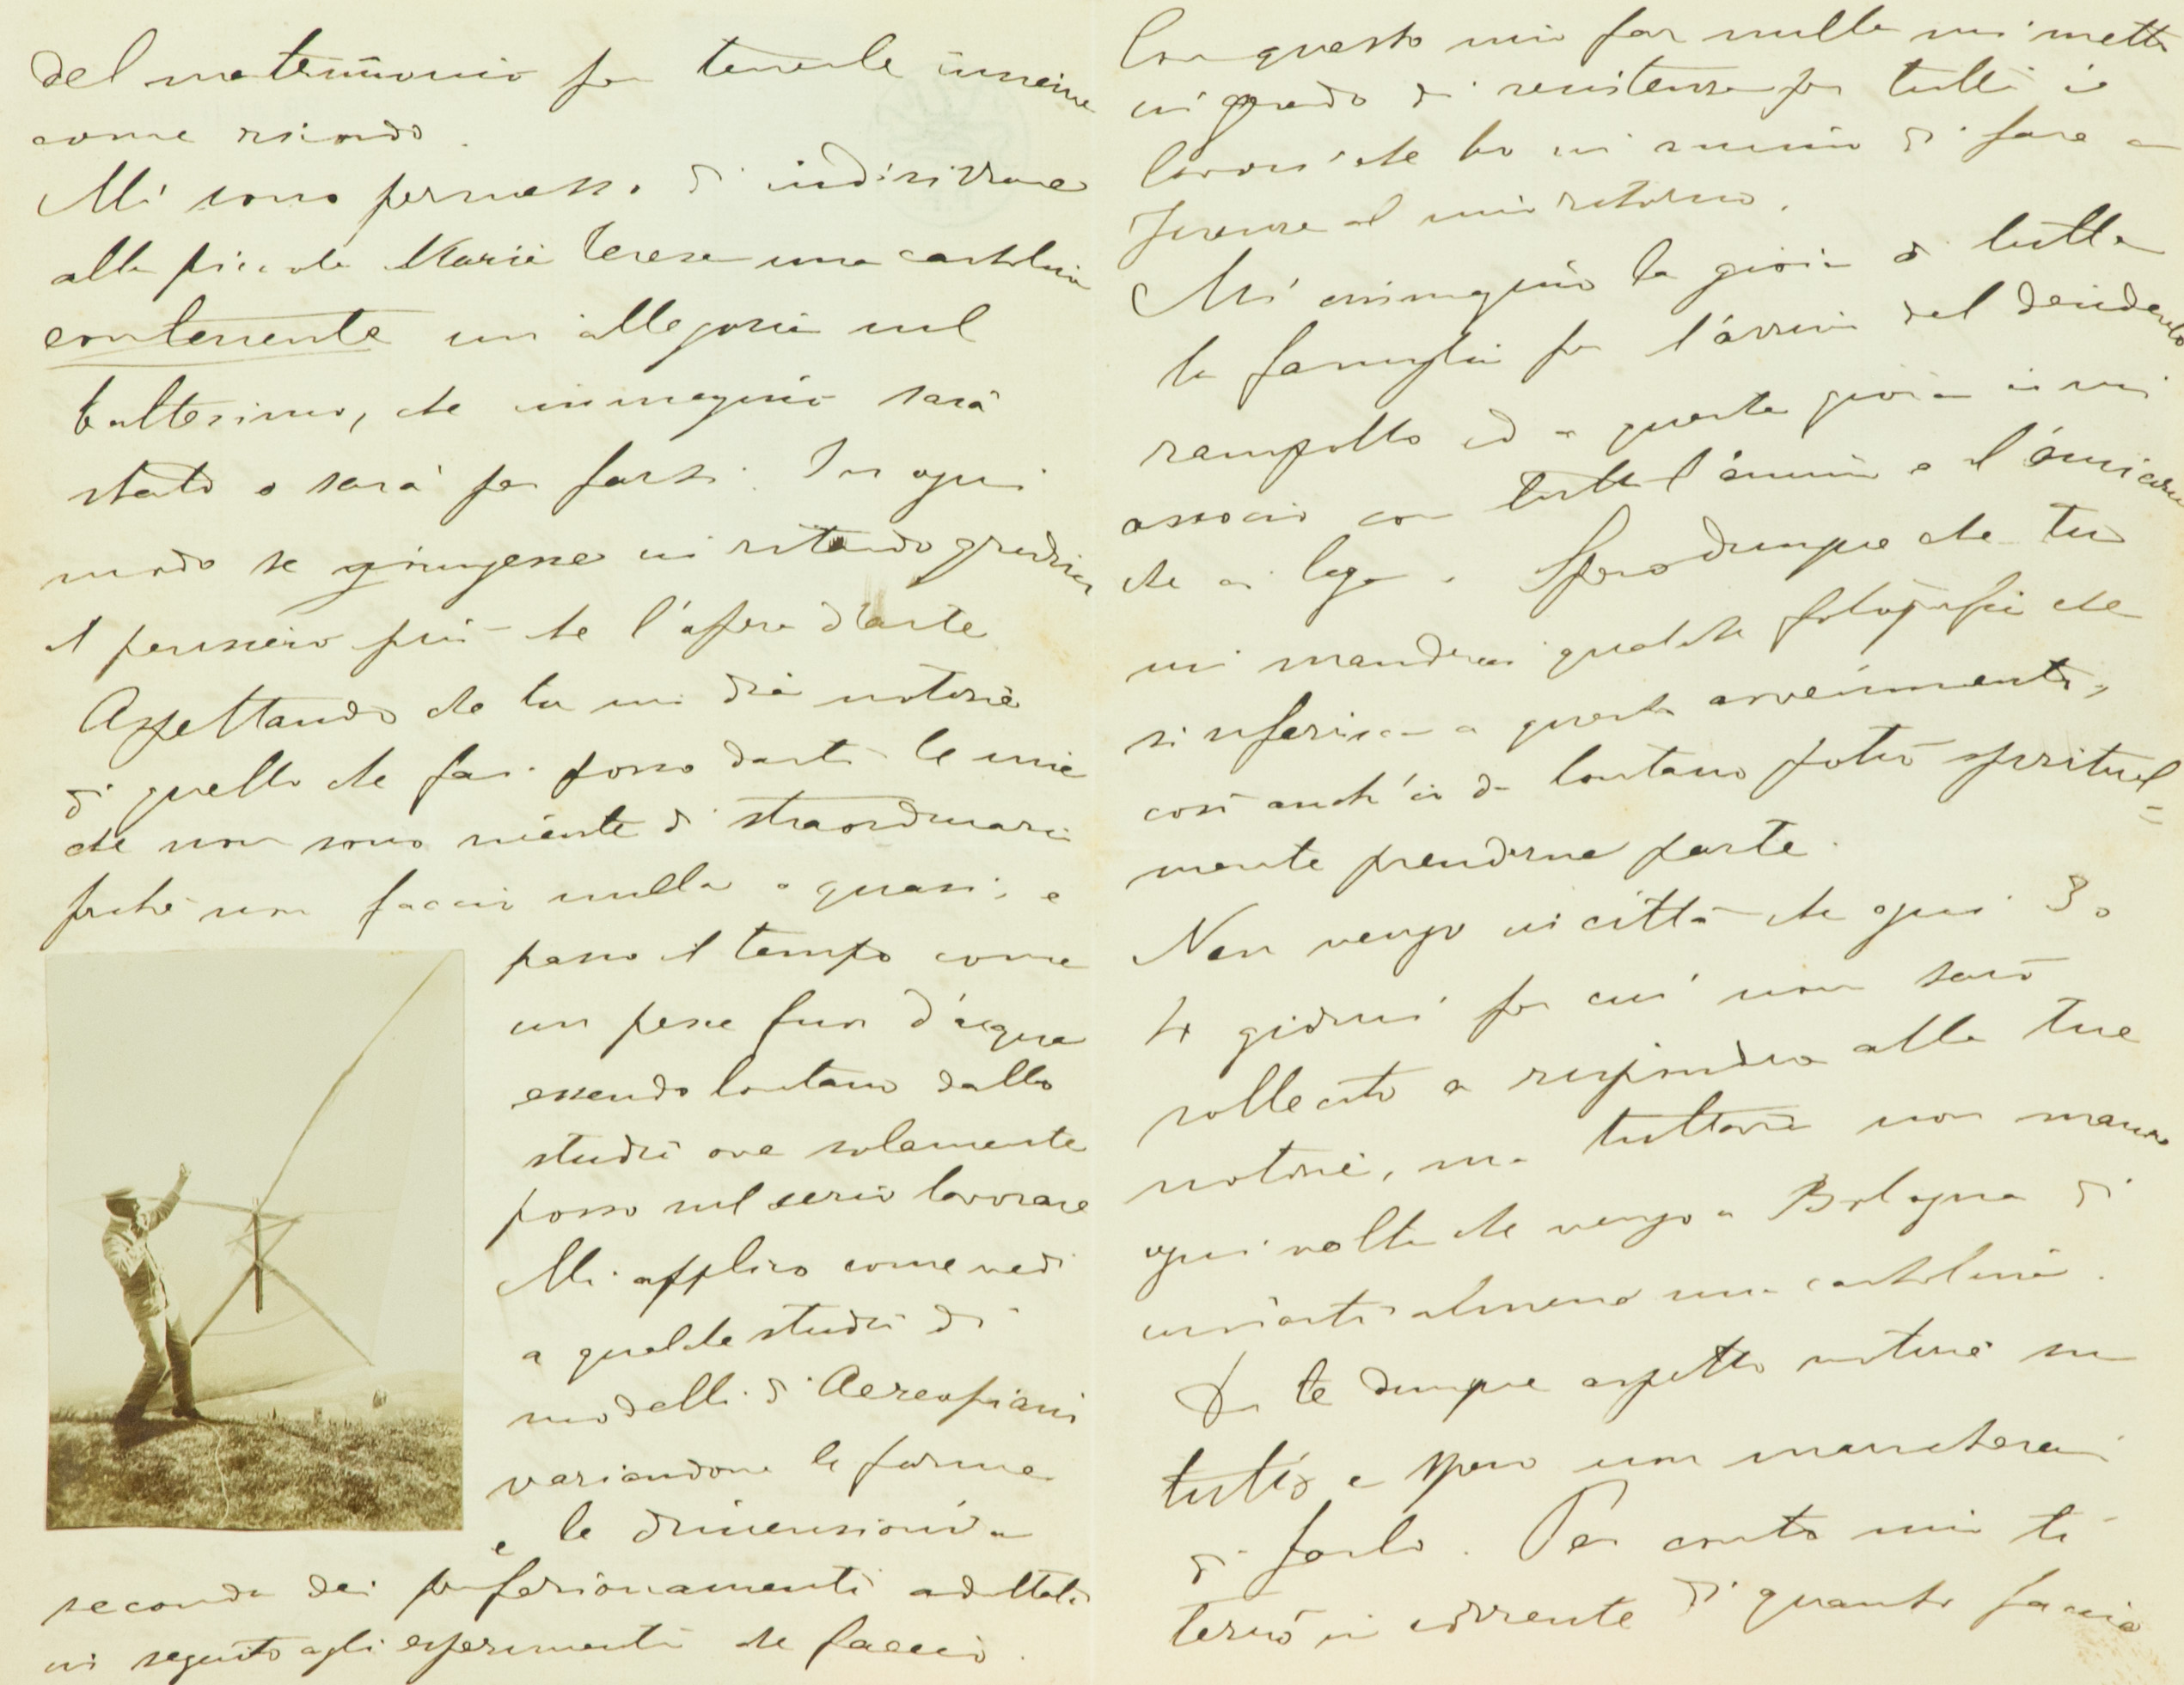 del matrimonio per tenerle insieme
come ricordo.
Mi sono permesso di indirizzare
alla piccola Maria Teresa una cartolina
contenente un allegoria sul
battesimo, che immagino sarà
stato o sarà per farsi. In ogni
modo se giungesse in ritardo gradirai
il pensiero più che l'opera d'arte
Aspettando che tu mi dia notizie
di quello che fai posso darti le mie
che non sono niente di straordinario
perché non faccio nulla o quasi, e
passo il tempo come
un pesce fuor d'acqua
essendo lontano dallo
studio ove solamente
posso sul serio lavorare
Mi applico come vedi
a qualche studio di
modelli di Aereoplani
variandone le forme
e le dimensioni a
seconda dei perfezionamenti adottati
in seguito agli esperimenti che faccio.
Con questo mio far nulla mi metto
in grado di resistenza per tutti i
lavori che ho in animo di fare a
Firenze al mio ritorno.
Mi immagino la gioia di tutta
la famiglia per l'arrivo del desiderato
rampollo ed a questa gioia io mi
associo con tutto l'animo e l'amicizia
che ci lega. Spero dunque che tu
mi manderai qualche fotografia che
si riferisca a questo avvenimento,
così anch'io da lontano potrò spiritual=
mente prenderne parte.
Non vengo in città che ogni 3 o
4 giorni per cui non sarò
sollecito a rispondere alle tue
notizie, ma tuttavia non manco
ogni volta che vengo a Bologna di
inviarti almeno una cartolina.
Da te dunque aspetto notizie su
tutto e spero non mancherai
di farlo. Per conto mio ti
terrò in corrente di quanto faccio